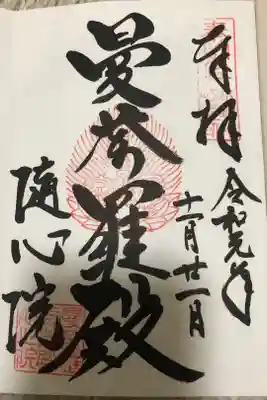 奉拝
令和元年
十一月廿一日
曼荼羅殿
隨心院